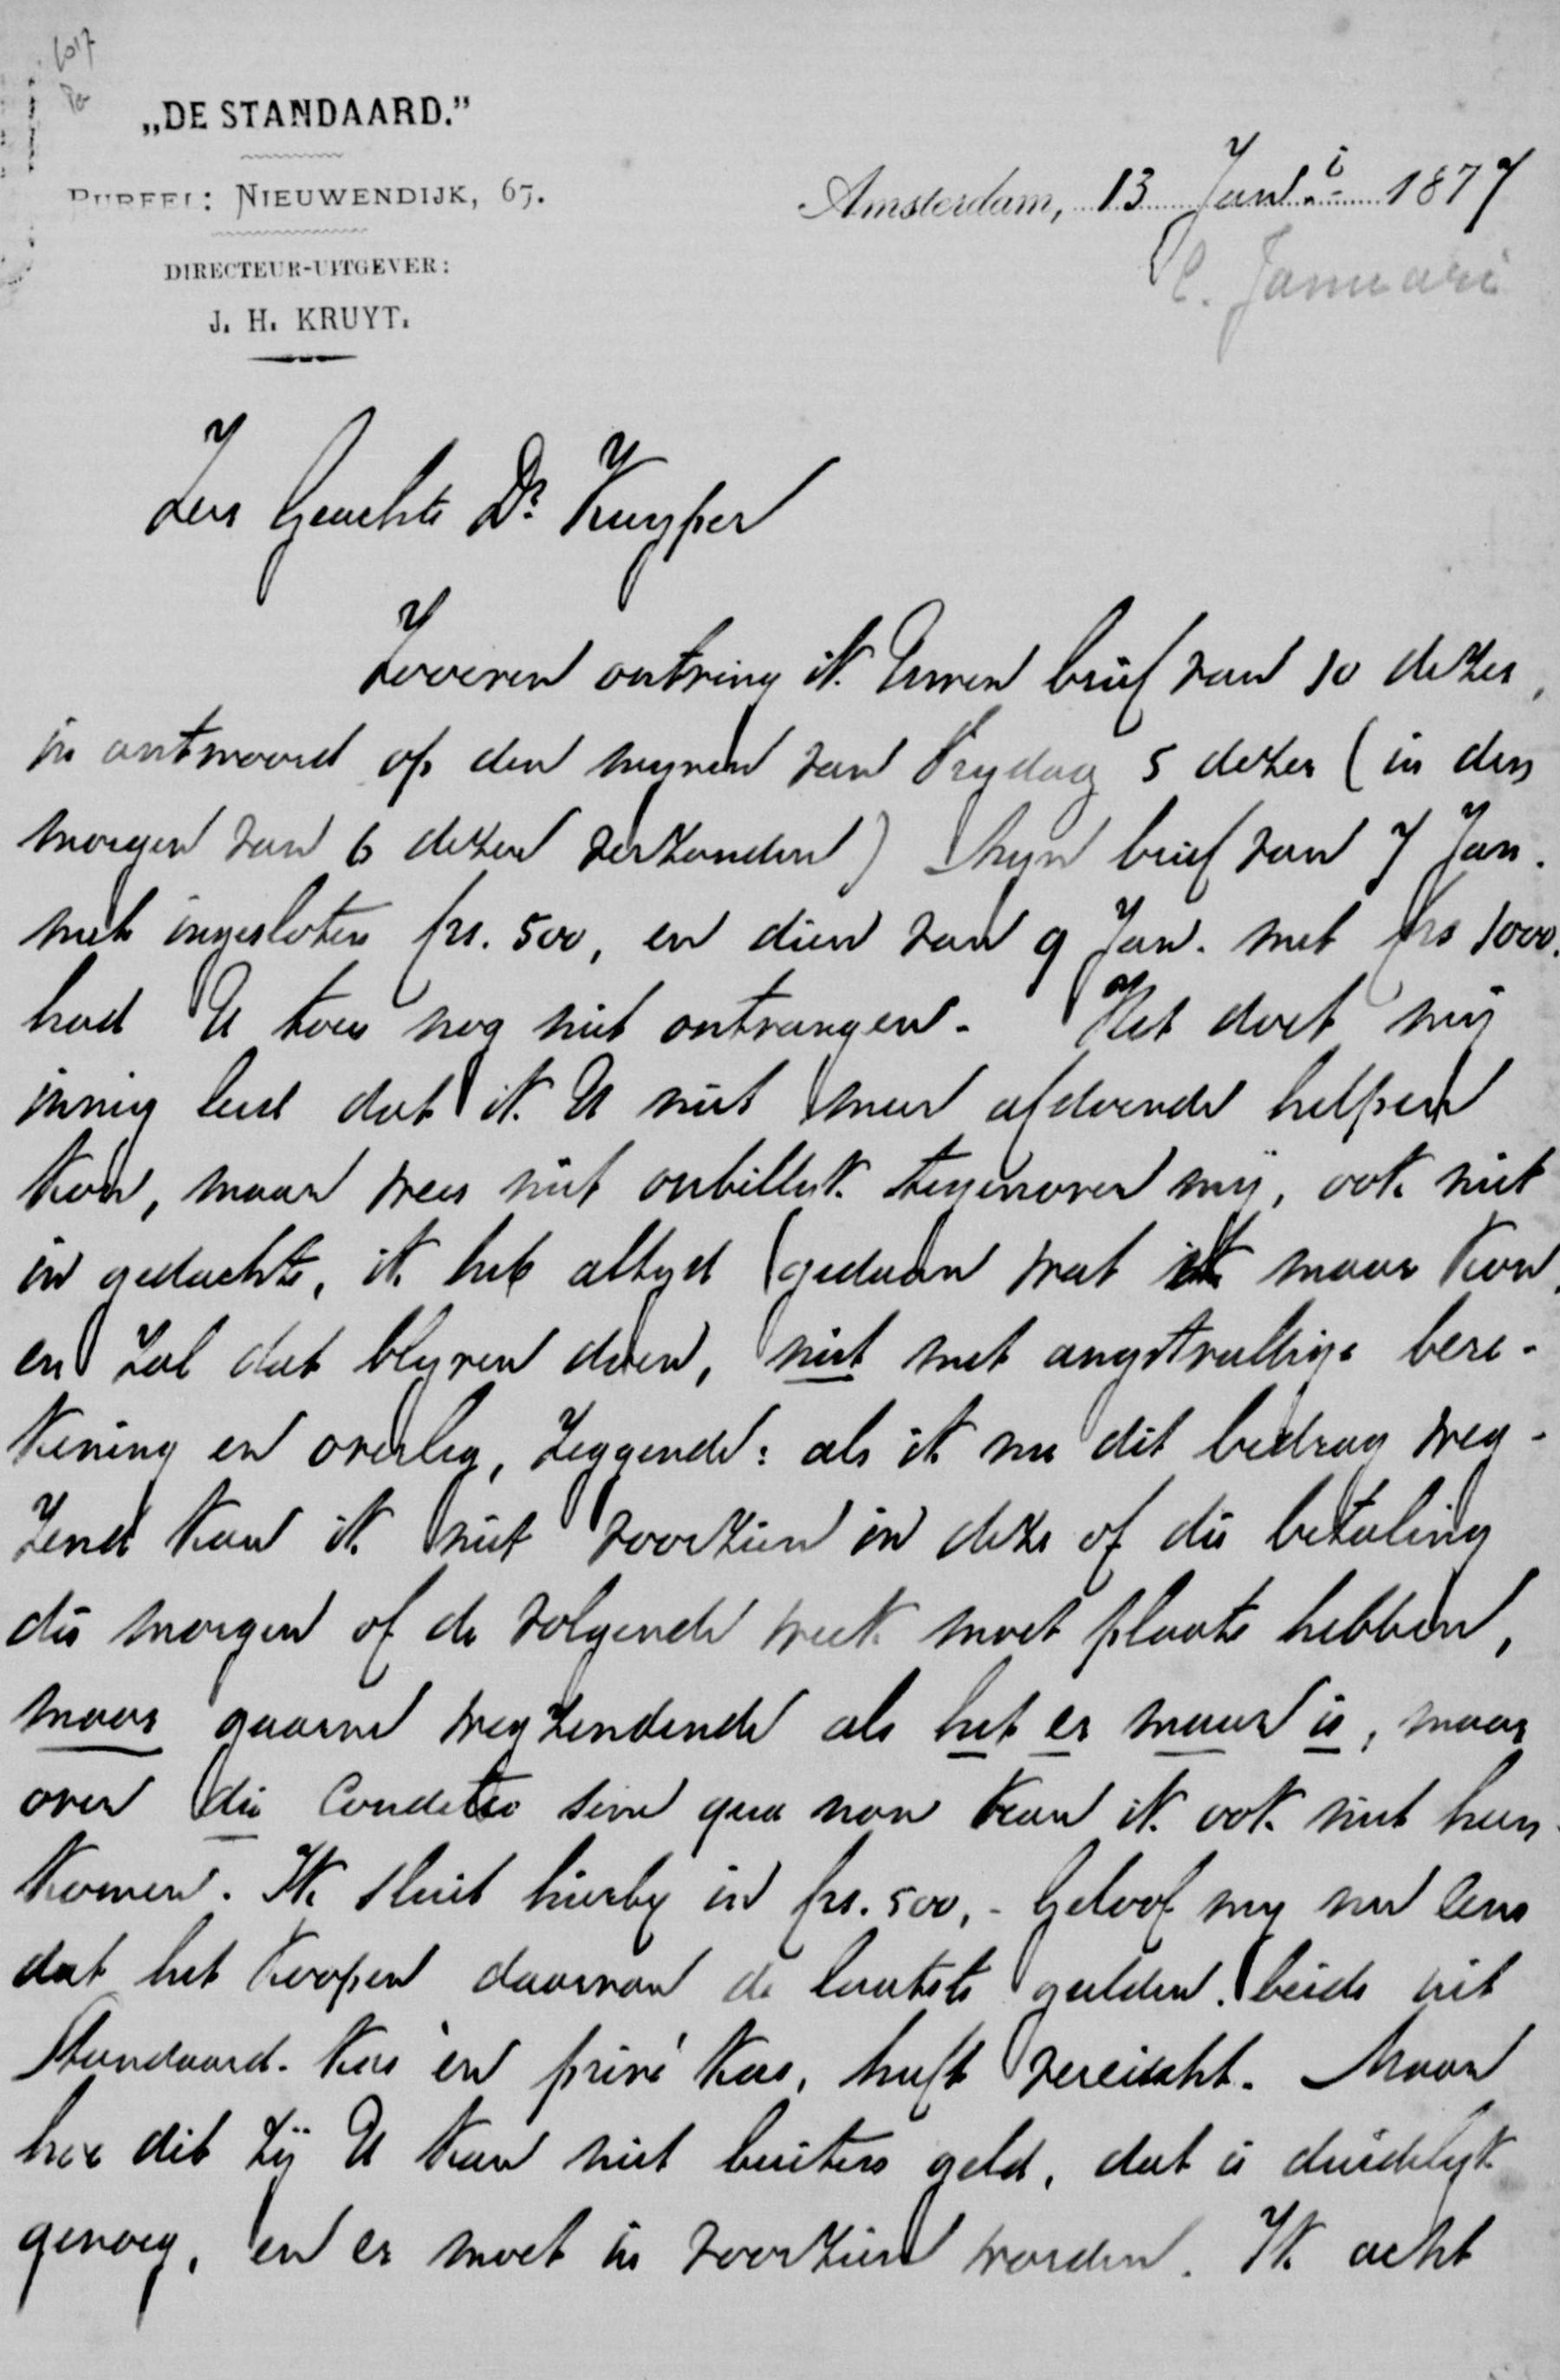 „DE STANDAARD.”
BUREEL: NIEUWENDIJK, 67.
DIRECTEUR-UITGEVER:
J. H. KRUYT.
Amsterdam, 13 Jan.i 1877
Januari
Zeer Geachte Dr. Kuyper
Zooeven ontving ik Uwen brief van 10 dezer,
in antwoord op den mynen van Vrydag 5 dezer (in den
morgen van 6 dezer verzonden) Myn brief van 7 Jan.
met ingesloten frs. 500, en dien van 9 Jan. met frs 1000.
had U toen nog niet ontvangen. Het doet mij
innig leed dat ik U niet meer afdoende helpen
kon, maar wees niet onbillyk tegenover mij, ook niet
in gedachte, ik heb altyd gedaan wat ik maar kon,
en zal dat blyven doen, niet met angstvallige bere-
kening en overleg, zeggende: als ik nu dit bedrag weg-
zend kan ik niet voorzien in deze of die betaling
die morgen of de volgende week moet plaats hebben,
maar gaarne wegzendende als het er maar is, maar
over die Conditio sine qua non kan ik ook niet heen
komen. Ik sluit hierby in frs. 500,- Geloof my nu eens
dat het koopen daarvan de laatste gulden, beide uit
Standaard-kas en privé kas, heeft vereischt. Maar
hoe dit zij U kan niet buiten geld, dat is duidelyk
genoeg, en er moet in voorzien worden. Ik acht